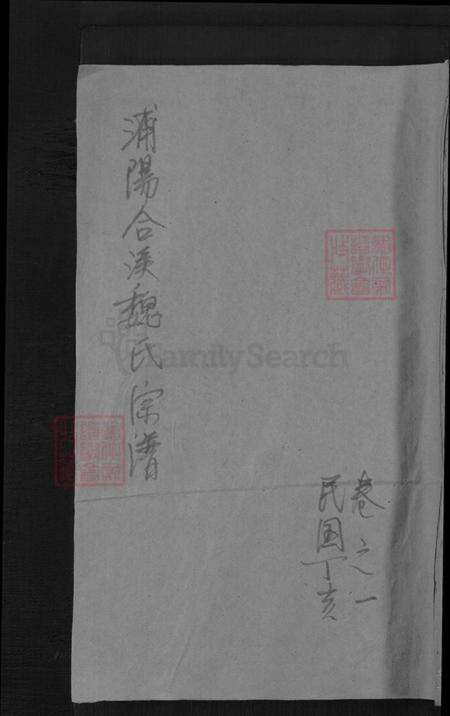 卷之一
民国丁亥
浦陽合溪魏氏宗谱
FamilySearch